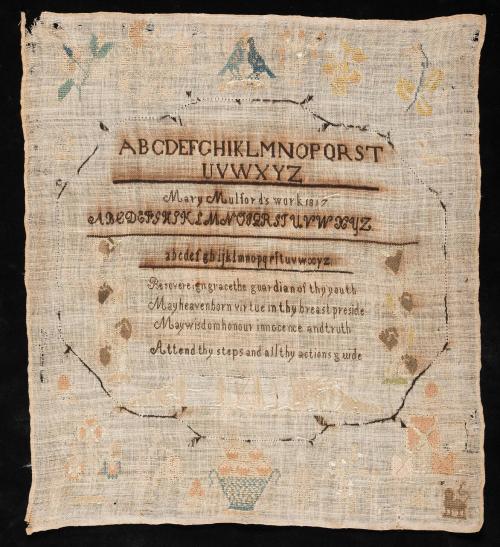 ABCDEFGHIKLMNOPQRST
UVWXYZ
Mary Mulford's work 1817
ABCDEFGHIKLMNOPQRSTUVWXYZ
abcdefghijklmnopqrſtuvwxyz
Be sovereign grace the guardian of thy youth
May heaven born virtue in thy breast preside
May wisdom honour innocence and truth
Attend thy steps and all thy actions guide